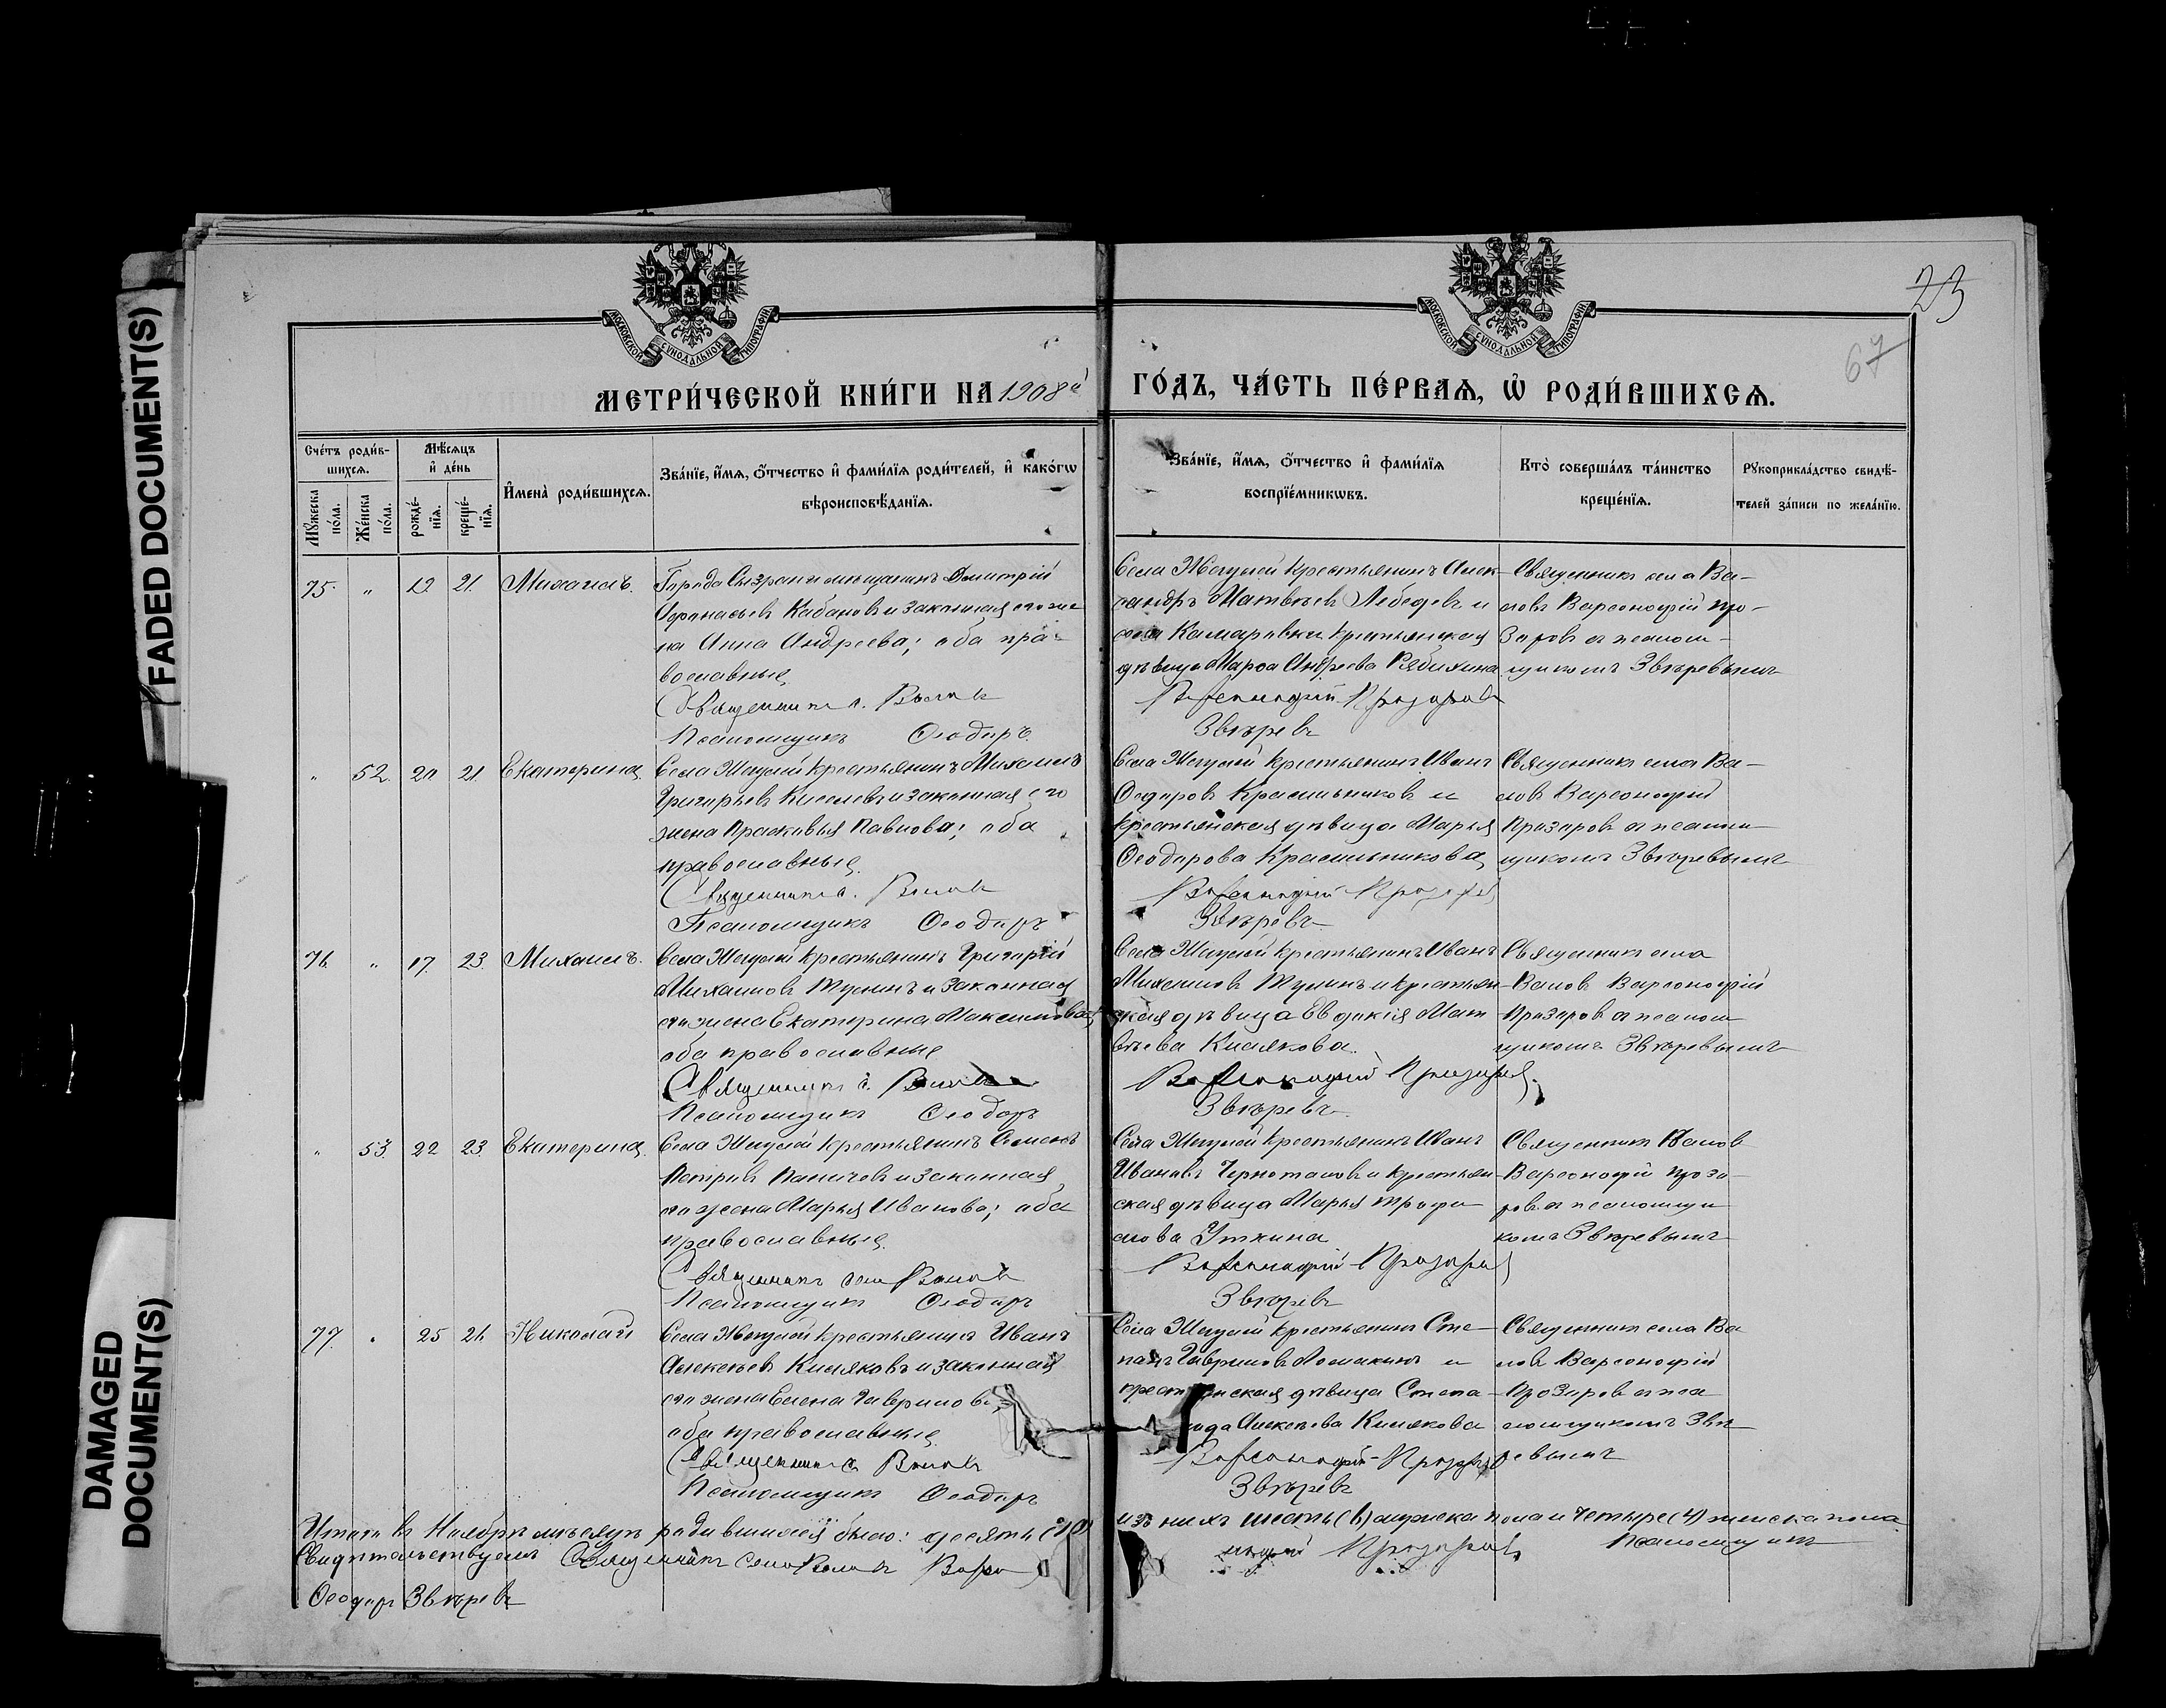 FADED DOCUMENT(S)
DAMAGED
DOCUMENT(S)
МОСКОВСКОЙ СѴНОДАЛЬНОЙ ТИПОГРАФІИ
МОСКОВСКОЙ СѴНОДАЛЬНОЙ ТИПОГРАФІИ
23
67
МЕТРИ́ЧЕСКОЙ КНИ́ГИ НА 1908й
ГО́ДЪ, ЧА́СТЬ ПЕ́РВАѦ, Ѡ҆ РОДИ́ВШИХСѦ.
Сче́тъ роди́в-
шихсѧ.
Мꙋ́жеска по́ла.
Же́нска по́ла.
Мѣ́сѧцъ
и҆ де́нь
рожде́-
нїѧ.
креще́-
нїѧ.
И҆мена̀ роди́вшихсѧ.
Зва́нїе, и҆́мѧ, ѻ҆́тчество и҆ фами́лїѧ роди́телей, и҆ како́гѡ
вѣроисповѣ́данїѧ.
Зва́нїе, и҆́мѧ, ѻ҆́тчество и҆ фами́лїѧ
воспрїе́мникѡвъ.
Кто̀ соверша́лъ та́инство
креще́нїѧ.
Рꙋкоприкла́дство свидѣ́-
телей за́писи по жела́нїю.
75. " 12 21. Михаилъ.
Города Сызрани мещанинъ Димитрій
Афанасьевъ Кабановъ и законная его же
на Анна Андреева; оба пра-
вославные
Священникъ с. Валовъ
Псаломщикъ Ѳеодоръ
Села Жегулей крестьянинъ Алек-
сандръ Матвѣевъ Лебедевъ и
села Комаровки крестьянская
дѣвица Марѳа Андреева Рябихина
Варсонофій Прозоровъ
Звѣревъ
Священникъ села Ва-
ловъ Варсонофій Про-
зоровъ съ псалом-
щикомъ Звѣревымъ
" 52. 20 21 Екатерина
Села Жегулей крестьянинъ Михаилъ
Григорьевъ Киселевъ и законная его
жена Прасковья Павлова; оба
православные.
Священникъ с. Валовъ
Псаломщикъ Ѳеодоръ
Села Жегулей крестьянинъ Иванъ
Ѳедоровъ Красильниковъ и
крестьянская дѣвица Марья
Ѳеодорова Красильникова
Варсонофій Прозоровъ
Звѣревъ
Священникъ села Ва-
ловъ Варсонофій
Прозоровъ съ псалом-
щикомъ Звѣревымъ
76. " 17 23. Михаилъ.
Села Жегулей крестьянинъ Григорій
Михаиловъ и законная
его жена Екатерина Максимова
оба православные
Священникъ с. Валовъ
Псаломщикъ Ѳеодоръ
Села Жегулей крестьянинъ Иванъ
Михаиловъ и крестьян-
ская дѣвица Евдокія Мат-
вѣева Кислякова.
Варсонофій Прозоровъ
Звѣревъ
Священникъ села
Валовъ Варсонофій
Прозоровъ съ псалом
щикомъ Звѣревымъ
" 53. 22 23. Екатерина.
Села Жегулей крестьянинъ Семенъ
Петровъ и законная
его жена Марья Иванова; оба
православные.
Священникъ села Валовъ
Псаломщикъ Ѳеодоръ
Села Жегулей крестьянинъ Иванъ
Ивановъ и крестьян
ская дѣвица Марья Трофи
мова Уткина
Варсонофій Прозоровъ
Звѣревъ
Священникъ Валовъ
Варсонофій Прозо-
ровъ съ псаломщи
комъ Звѣревымъ
77. " 25 26. Николай
Села Жегулей крестьянинъ Иванъ
Алексѣевъ Кисляковъ и законная
его жена Елена Гаврилова;
оба православные
Священникъ с. Валовъ
Псаломщикъ Ѳеодоръ
Села Жегулей крестьянинъ Сте-
панъ Гавриловъ Ломакинъ и
крестьянская дѣвица Степа-
нида Алексѣева Кислякова
Варсонофій Прозоровъ
Звѣревъ
Священникъ села Ва
ловъ Варсонофій
Прозоровъ съ пса
ломщикомъ Звѣ
ревымъ
Итого въ Ноябрѣ мѣсяцѣ родившихся было: десять (10)
изъ нихъ шесть (6) мужеска пола и четыре (4) женска пола.
Свидѣтельствуемъ Священникъ села Валовъ Варсо
нофій Прозоровъ Псаломщикъ
Ѳеодоръ Звѣревъ